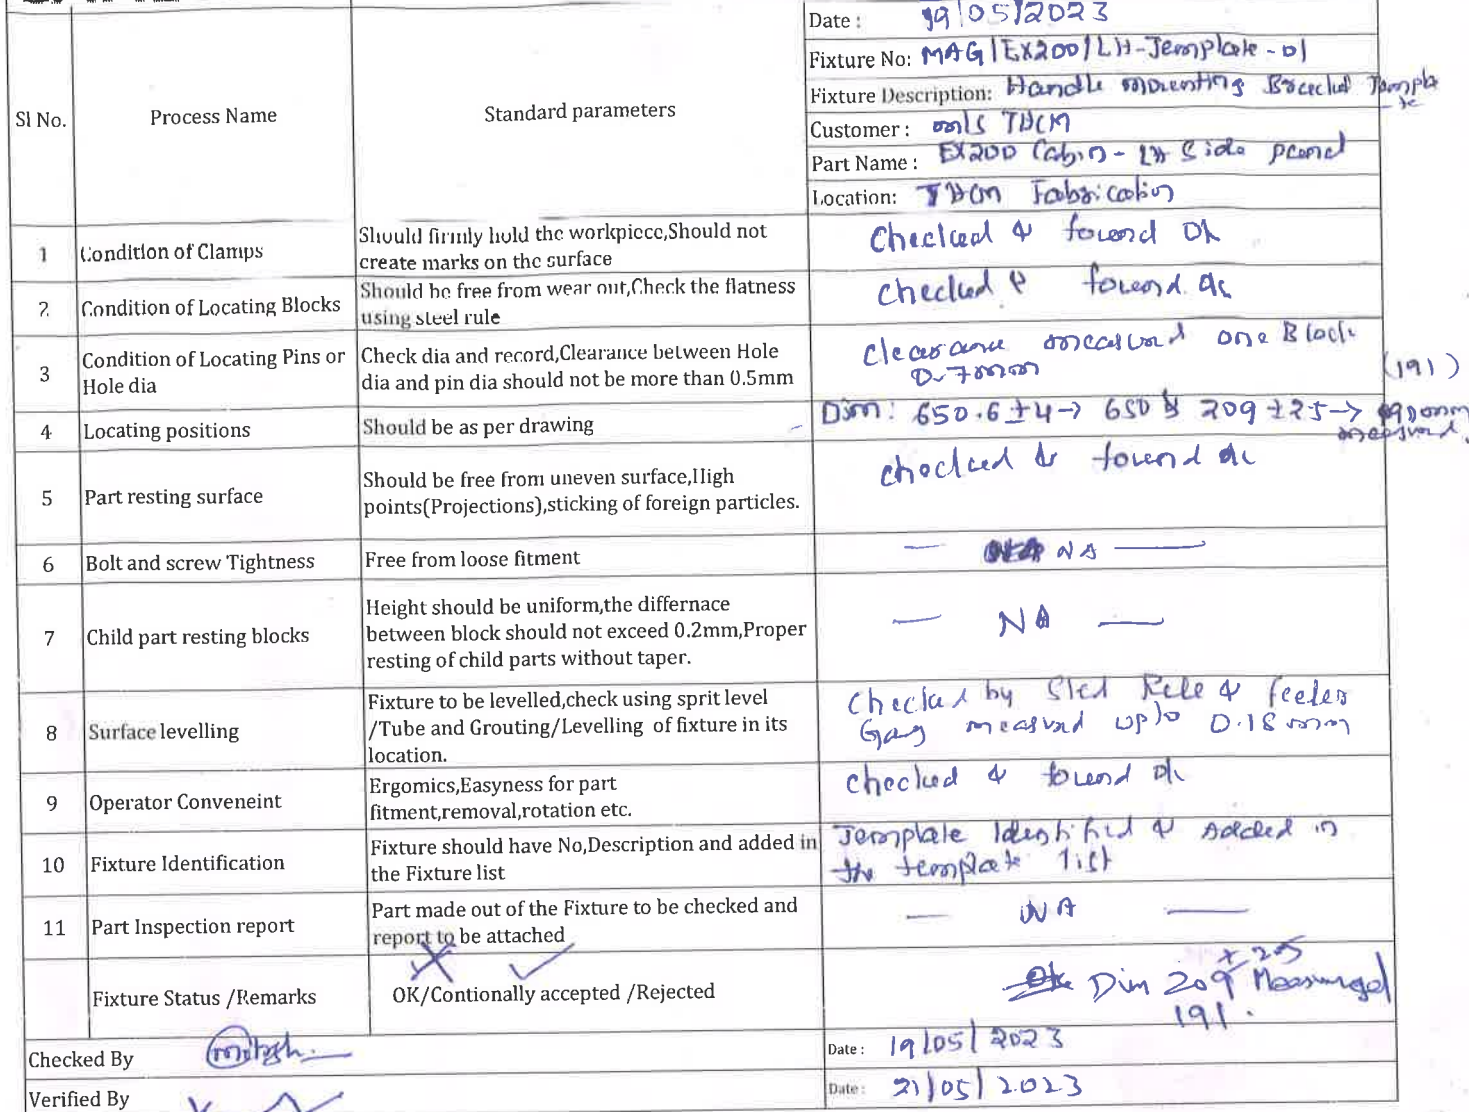 Sl No.
Process Name
Standard parameters
Date : 19/05/2023
Fixture No: MAG/EX200/LH-Template-01
Fixture Description: Handle mounting Bracket Template
Customer : m/s THCM
Part Name : EX200 Cabin - LH Side panel
Location: THCM Fabrication
1
Condition of Clamps
Should firmly hold the workpiece,Should not
create marks on the surface
Checked & found Ok
2
Condition of Locating Blocks
Should be free from wear out,Check the flatness
using steel rule
Checked & found ok
3
Condition of Locating Pins or
Hole dia
Check dia and record,Clearance between Hole
dia and pin dia should not be more than 0.5mm
Clearance measured one Block
0.7mm
(191)
4
Locating positions
Should be as per drawing
Dim: 650.6 ±4 → 650 & 209 ±25 →
measured.
5
Part resting surface
Should be free from uneven surface,High
points(Projections),sticking of foreign particles.
checked & found ok
6
Bolt and screw Tightness
Free from loose fitment
— NA —
7
Child part resting blocks
Height should be uniform,the differnace
between block should not exceed 0.2mm,Proper
resting of child parts without taper.
— NA —
8
Surface levelling
Fixture to be levelled,check using sprit level
/Tube and Grouting/Levelling of fixture in its
location.
Checked by Steel Rule & feeler
Gag measured upto 0.18 mm
9
Operator Conveneint
Ergomics,Easyness for part
fitment,removal,rotation etc.
checked & found ok
10
Fixture Identification
Fixture should have No,Description and added in
the Fixture list
Template Identified & Added in
the template list
11
Part Inspection report
Part made out of the Fixture to be checked and
report to be attached
— NA —
Fixture Status /Remarks
OK/Contionally accepted /Rejected
Ok Dim 209 ±25 Measured
191.
Checked By
Date : 19/05/2023
Verified By
Date : 21/05/2023